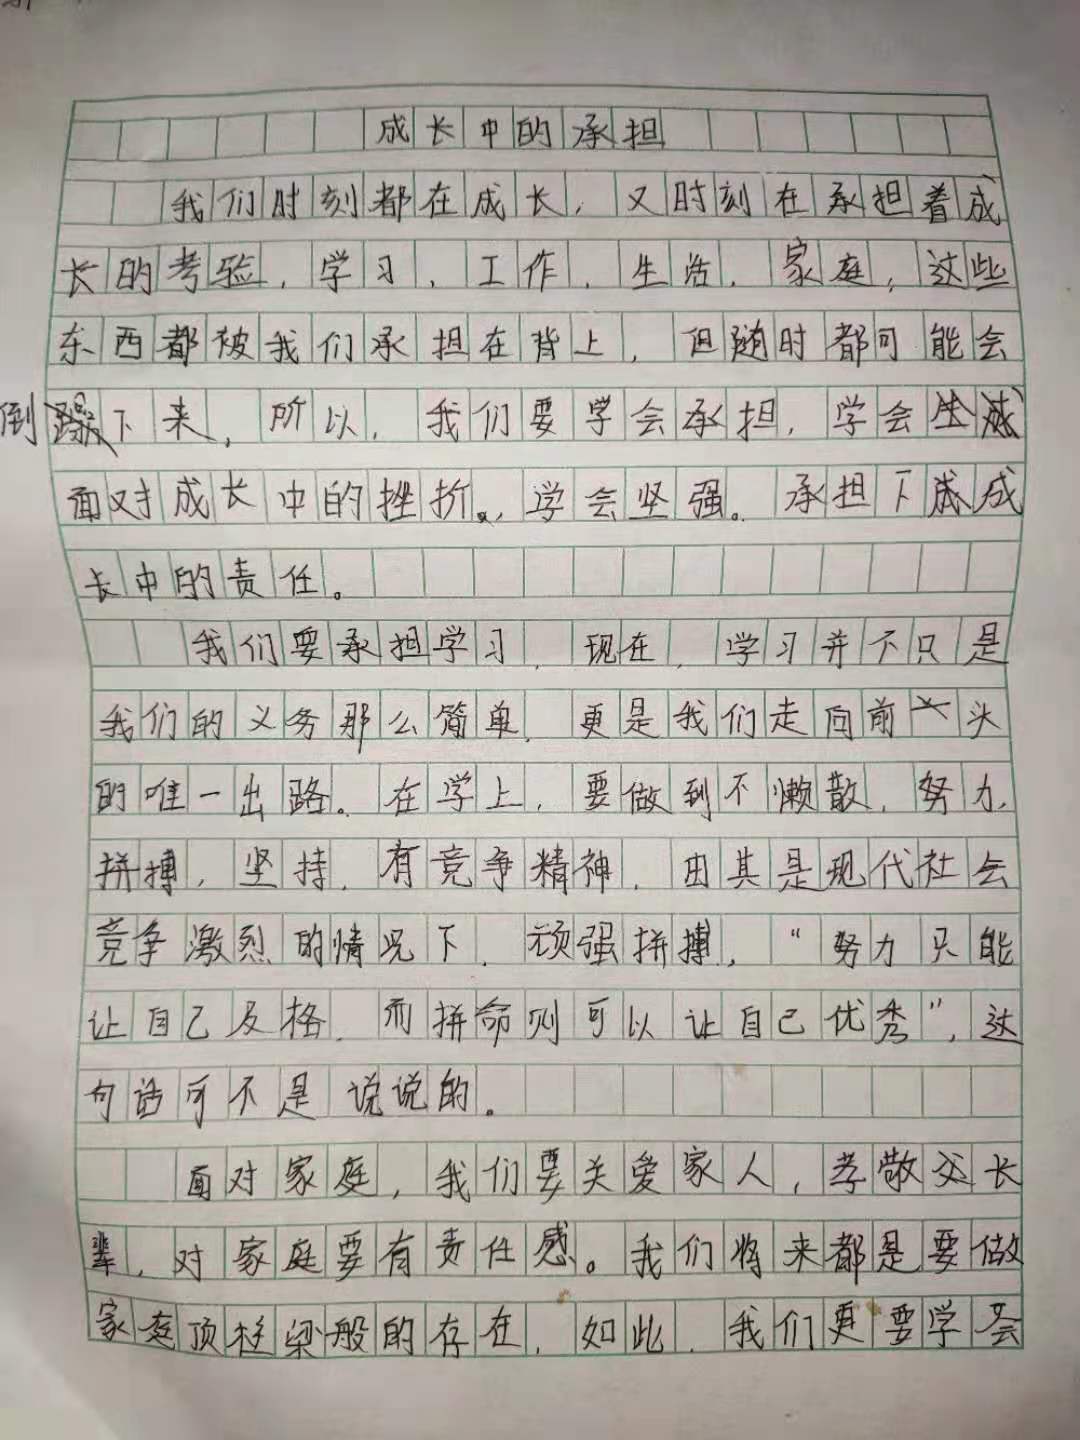 成长中的承担
我们时刻都在成长，又时刻在承担着成
长的考验，学习，工作，生活，家庭，这些
东西都被我们承担在背上，但随时都可能会
倒下来，所以，我们要学会承担，学会
面对成长中的挫折，学会坚强。承担下成
长中的责任。
我们要承担学习，现在，学习并不只是
我们的义务那么简单，更是我们走向前头
的唯一出路。在学上，要做到不懒散，努力，
拼搏，坚持，有竞争精神，由其是现代社会
竞争激烈的情况下，顽强拼搏，“努力只能
让自己及格，而拼命则可以让自己优秀”，这
句话可不是说说的。
面对家庭，我们要关爱家人，孝敬父长
辈，对家庭要有责任感。我们将来都是要做
家庭顶梁般的存在，如此，我们更要学会